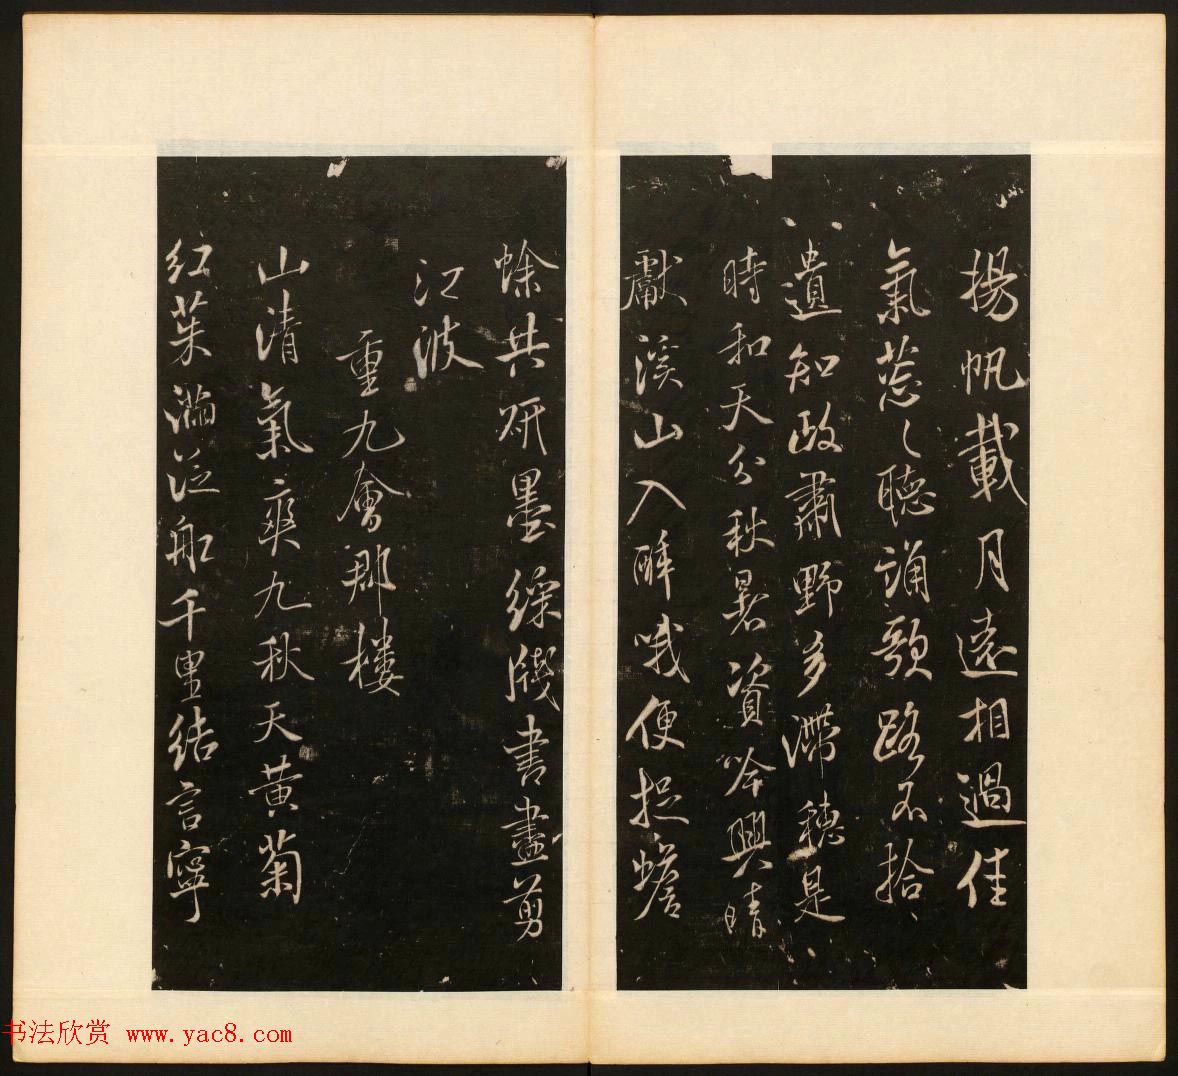 揚帆載月遠相過佳
氣蔥〻聽誦歌路不拾
遺知政肅野多滯穗是
時和天分秋暑資吟興晴
獻溪山入醉哦便捉蟾
蜍共研墨綵牋書盡剪
江波
重九會郡樓
山清氣爽九秋天黃菊
紅茱滿泛船千里結言寧
书法欣赏 www.yac8.com